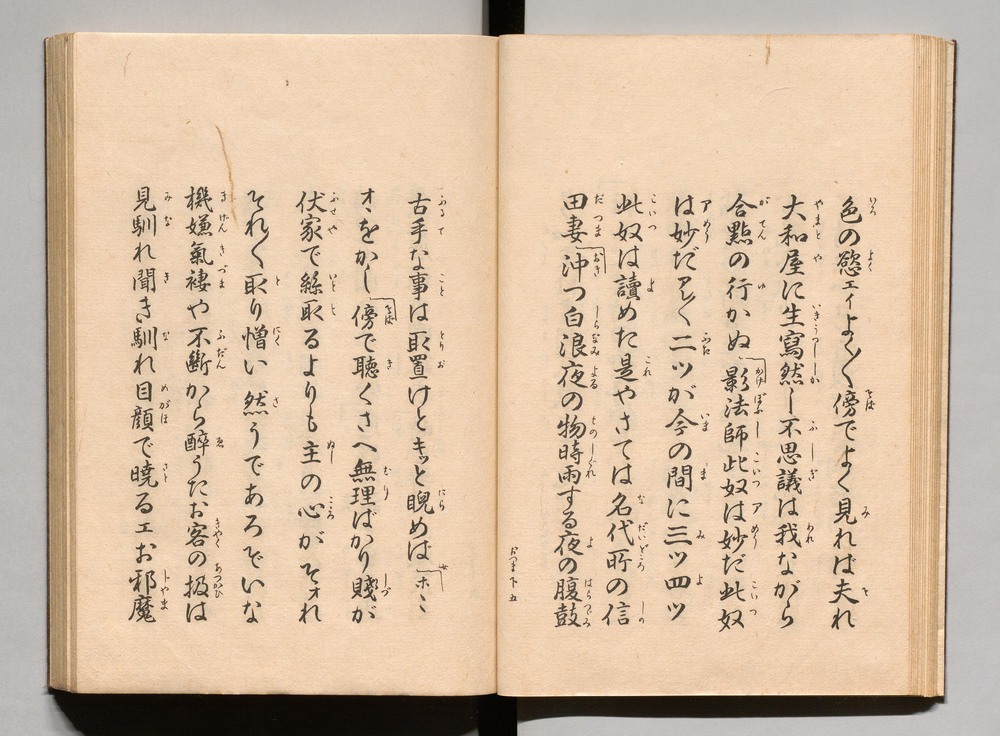 色の慾ェィよく〱傍でよく見れば夫れ
大和屋に生寫然し不思議は我ながら
合點の行かぬ「影法師此奴は妙だ此奴
は妙だアレ〱二ツが今の間に三ツ四ツ
此奴は讀めた是やさては名代所の信
田妻「沖つ白浪夜の物時雨する夜の腹鼓
古手な事は取置けとキッと睨めば「ホヽ
オヽをかし「傍で聴くさへ無理ばかり賤が
伏家で絲取るよりも主の心がそれ
それ〱取り憎い然うであろでいな
機嫌氣褄や不斷から醉うたお客の扱は
見馴れ聞き馴れ目顔で曉るエお邪魔